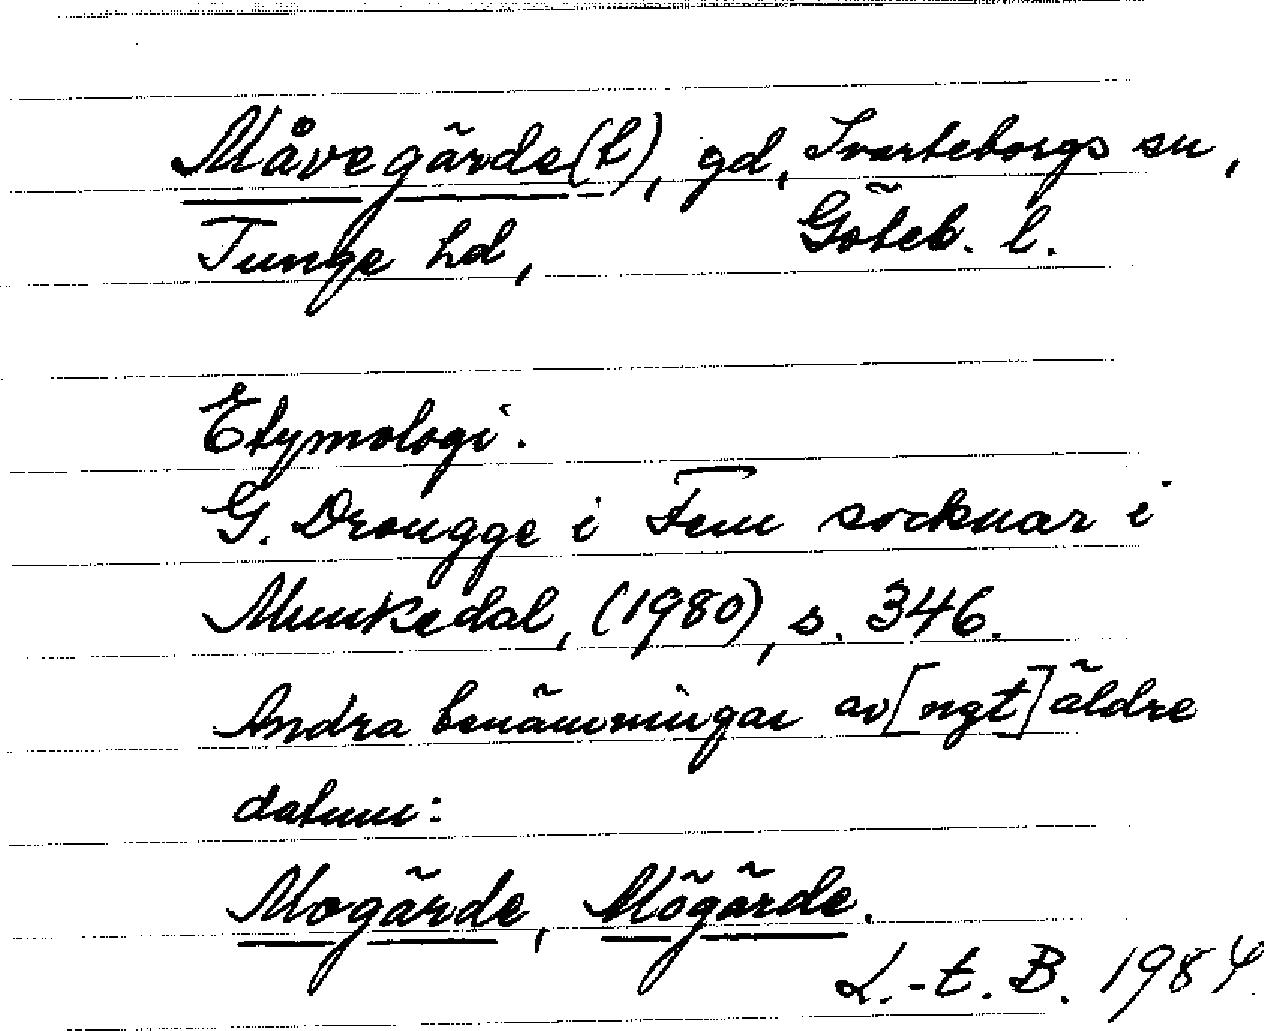 Måvegärde(t), gd, Svarteborgs sn,
Tunge hd, Göteb. l.
Etymologi.
G. Drougge i Fem socknar i
Munkedal, (1980), s. 346.
Andra benämningar av [ngt] äldre
datum:
Mogärde, Mögärde.
L.-t. B. 1984.